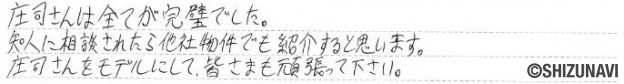 庄司さんは全てが完璧でした。
知人に相談されたら他社物件でも紹介すると思います。
庄司さんをモデルにして、皆さまも頑張って下さい。
©SHIZUNAVI